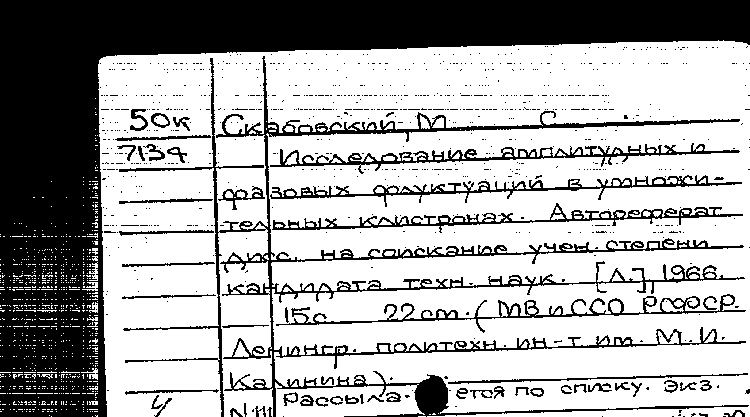 50к Скабовский, М С.
7134 Исследование амплитудных и
фазовых флуктуаций в умножи-
тельных клистронах. Автореферат
дисс. на соискание учен. степени
кандидата техн. наук. [Л.], 1966.
15с. 22 см. (МВ и ССО РСФСР.
Ленингр. политехн. ин-т им. М.И.
Калинина).
Рассыла ется по списку. Экз.